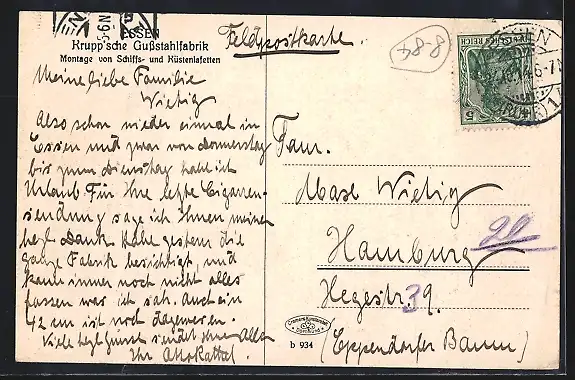 ESSEN
Krupp'sche Gußstahlfabrik
Montage von Schiffs- und Küstenlafetten
Feldpostkarte.
8-84
Meine liebe Familie
Wietig
Also schon wieder einmal in
Essen und zwar von Donnerstag
bis zum Dienstag habe ich
Urlaub. Für Ihre letzte Cigarren-
sendung sage ich Ihnen meinen
hezl Dank habe gestern die
ganze Fabrik besichtigt, und
kann immer noch nicht alles
fassen was ich sah. Auch ein
42 cm ist noch dagewesen.
Viele hezl Grüsse sendet Ihnen Allen
Ihr
Fam.
Max Wietig
Hamburg 20
Hegestr. 39.
(Eppendorfer Baum)
DEUTSCHES REICH
5
b 934